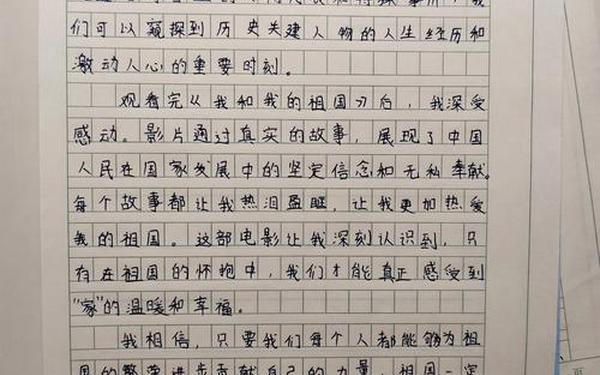 们可以窥探到历史关建人物的人生经历和
激动人心的重要时刻。
观看完《我和我的祖国》后,我深受
感动。影片通过真实的故事,展现了中国
人民在国家发展中的坚定信念和无私奉献。
每个故事都让我热泪盈眶,让我更加热爱
我的祖国。这部电影让我深刻认识到,只
有在祖国的怀抱中,我们才能真正感受到
"家"的温暖和幸福。
我相信,只要我们每个人都能够为祖
国的繁荣进步贡献自己的力量,祖国一定
页